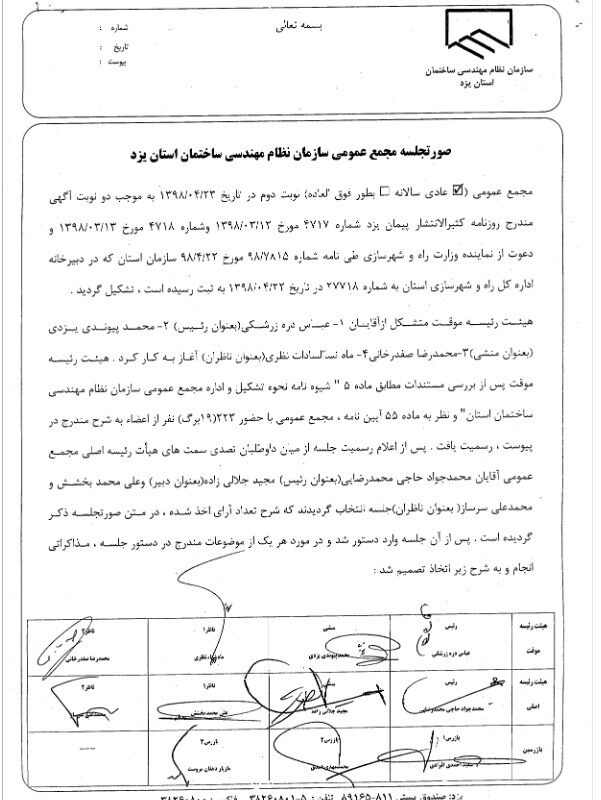 بسمه تعالی
شماره :
تاریخ :
پیوست :
سازمان نظام مهندسی ساختمان
استان یزد
صورتجلسه مجمع عمومی سازمان نظام مهندسی ساختمان استان یزد
مجمع عمومی (☑ عادی سالانه □ بطور فوق العاده) نوبت دوم در تاریخ ۱۳۹۸/۰۴/۲۳ به موجب دو نوبت آگهی
مندرج روزنامه کثیرالانتشار پیمان یزد شماره ۴۷۱۷ مورخ ۱۳۹۸/۰۳/۱۲ وشماره ۴۷۱۸ مورخ ۱۳۹۸/۰۳/۱۳ و
دعوت از نماینده وزارت راه و شهرسازی طی نامه شماره ۹۸/۷۸۱۵ مورخ ۹۸/۴/۲۲ سازمان استان که در دبیرخانه
اداره کل راه و شهرسازی استان به شماره ۲۷۷۱۸ در تاریخ ۱۳۹۸/۰۴/۲۲ به ثبت رسیده است ، تشکیل گردید .
هیئت رئیسه موقت متشکل ازآقایان ۱- عباس دره زرشکی(بعنوان رئیس) ۲- محمد پیوندی یزدی
(بعنوان منشی)۳-محمدرضا صفدرخانی۴- ماه نظری(بعنوان ناظران) آغاز به کار کرد . هیئت رئیسه
موقت پس از بررسی مستندات مطابق ماده ۵ " شیوه نامه نحوه تشکیل و اداره مجمع عمومی سازمان نظام مهندسی
ساختمان استان" و نظر به ماده ۵۵ آیین نامه ، مجمع عمومی با حضور ۲۲۳(۱۹برگ) نفر از اعضاء به شرح مندرج در
پیوست ، رسمیت یافت . پس از اعلام رسمیت جلسه از میان داوطلبان تصدی سمت های هیأت رئیسه اصلی مجمع
عمومی آقایان محمدجواد حاجی محمدرضایی(بعنوان رئیس) مجید جلالی زاده(بعنوان دبیر) وعلی محمد بخشش و
محمدعلی سرساز( بعنوان ناظران)جلسه انتخاب گردیدند که شرح تعداد آرای اخذ شده ، در متن صورتجلسه ذکر
گردیده است . پس از آن جلسه وارد دستور شد و در مورد هر یک از موضوعات مندرج در دستور جلسه ، مذاکراتی
انجام و به شرح زیر اتخاذ تصمیم شد :
هیئت رئیسه موقت رئیس عباس دره زرشکی منشی محمد پیوندی یزدی ناظر۱ نظری ناظر۲ محمدرضا صفدرخانی
هیئت رئیسه اصلی رئیس محمد جواد حاجی محمدرضایی منشی مجید جلالی زاده ناظر۱ علی محمد بخشش ناظر۲
بازرسین بازرس۱ بازرس۲ بازرس۳ ----
یزد: صندوق پستی ۸۱۱-۸۹۱۶۵ تلفن :